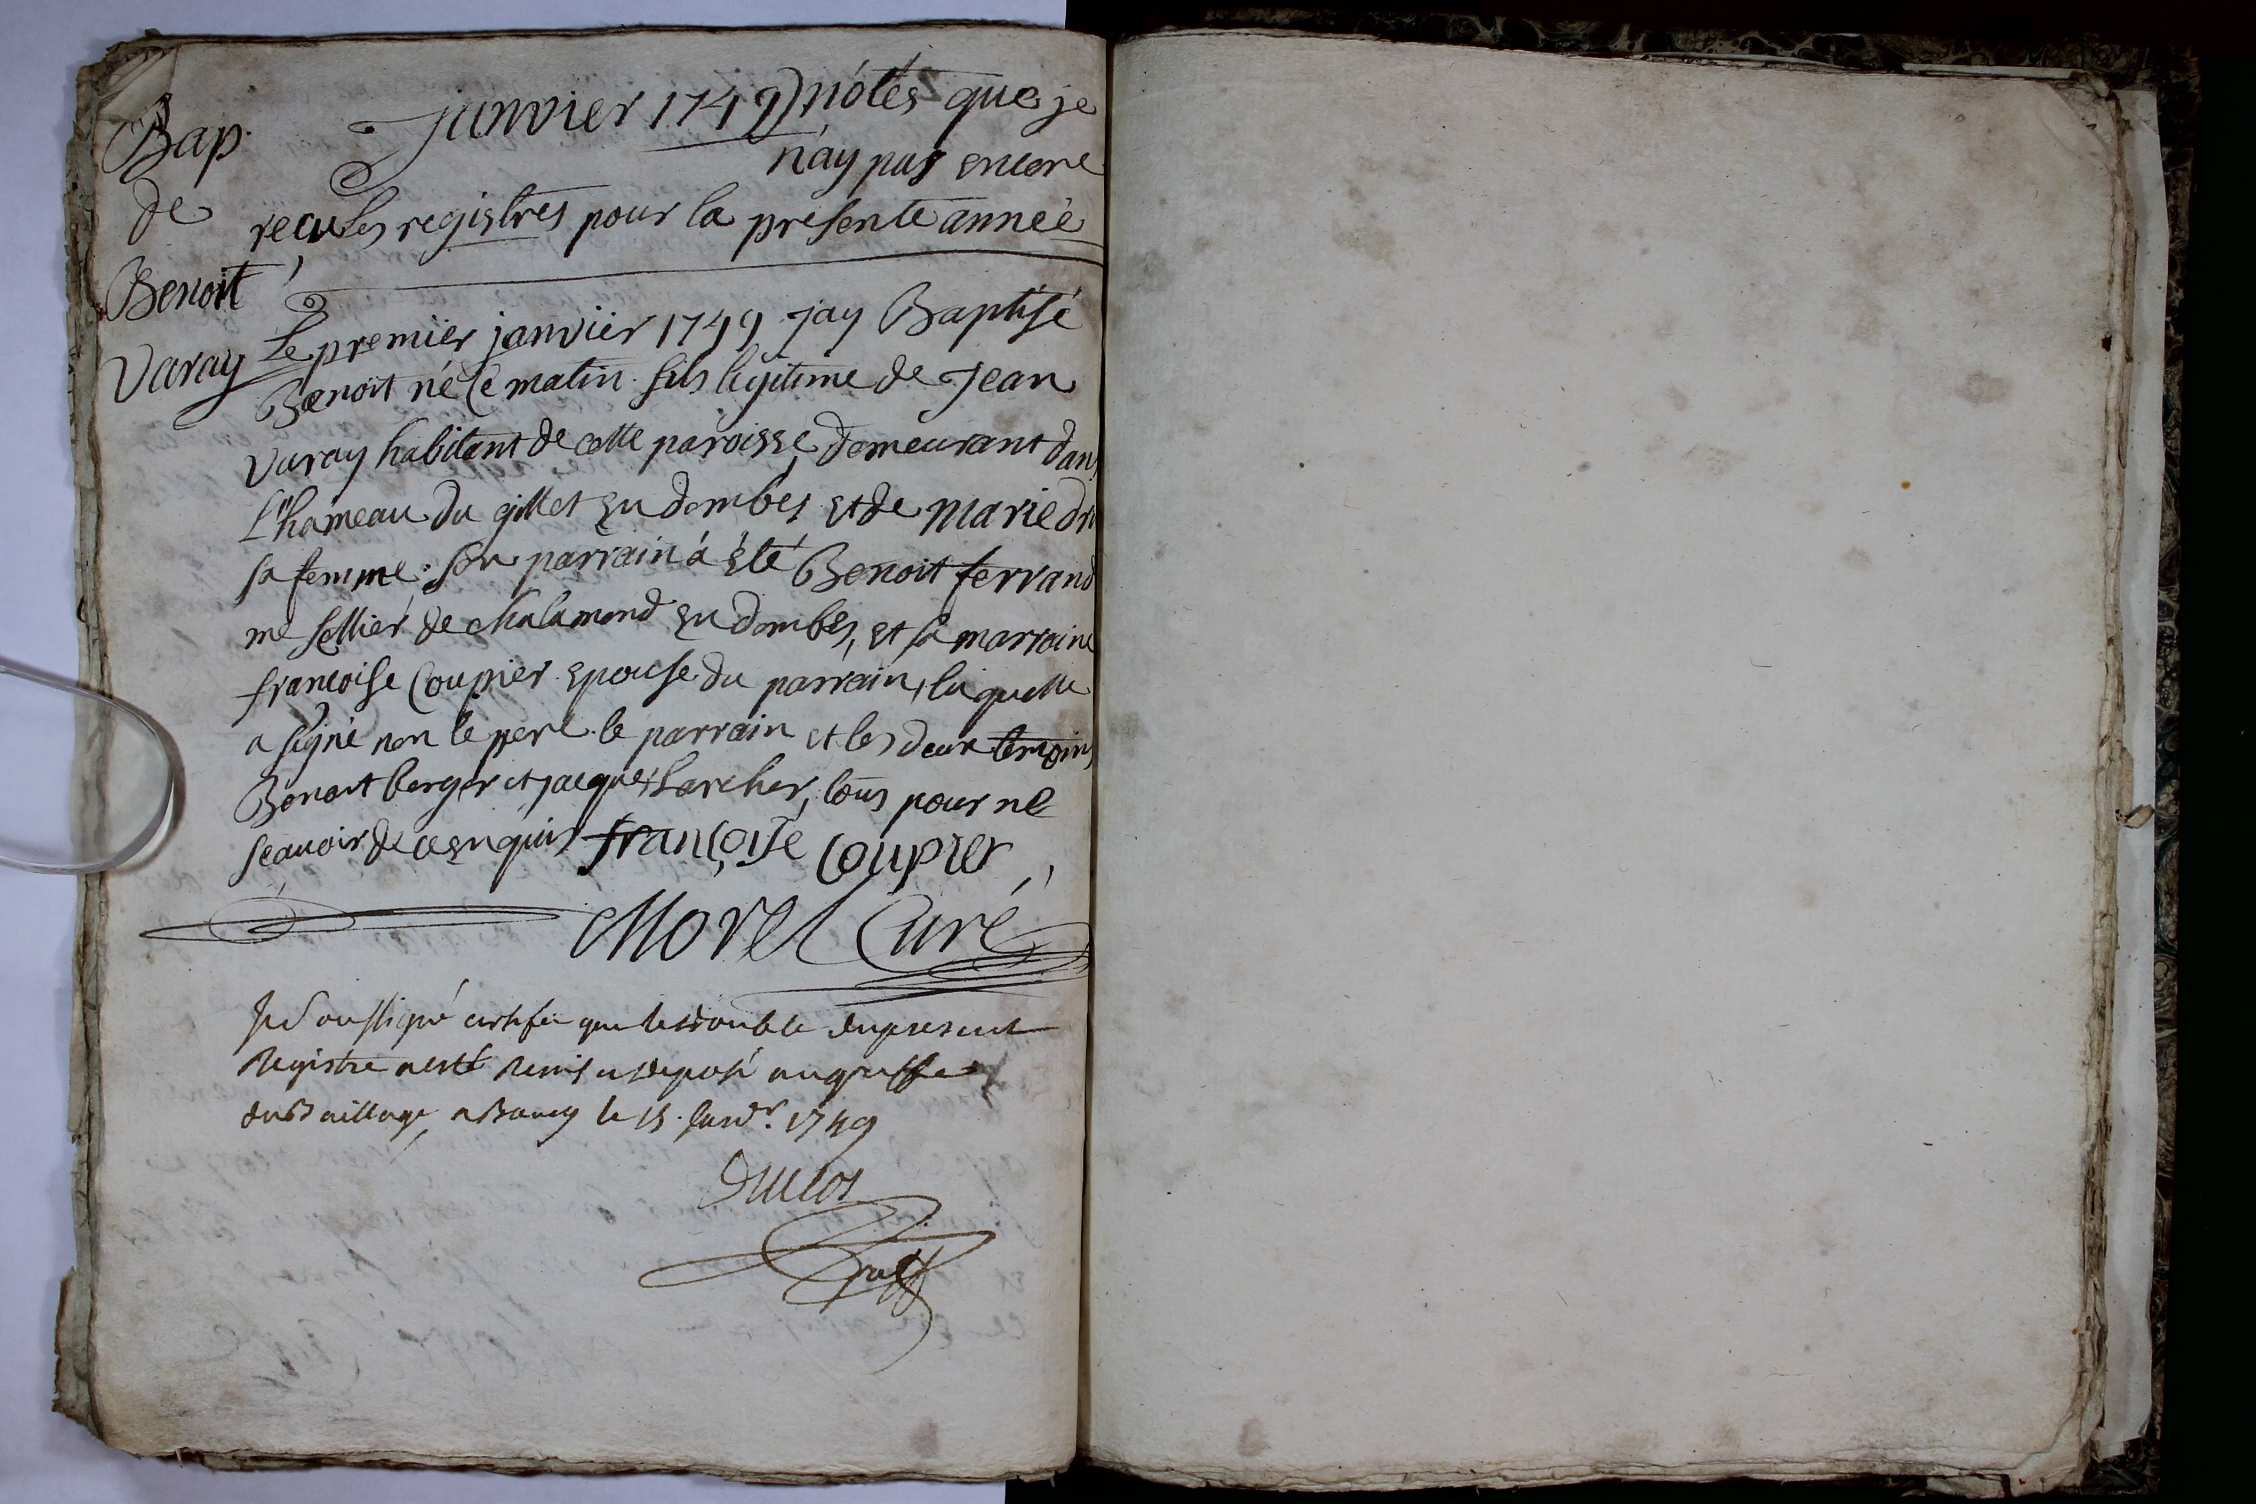 Bap.
de
Benoit
Varay
janvier 1749) notés que je
n'ay pas encore
reçu les registres pour la presente année
Le premier janvier 1749 jay Baptisé
Benoit né ce matin fils legitime de Jean
Varay habitant de cette paroisse, demeurant dans
L'hameau du gillet en dombes et de marie dr
sa femme; son parrain á été Benoit ferrand
me sellier de chalamond en dombes, et sa marraine
francoise Coupier epouse du parrain, laquelle
a signé non le pere le parrain et les deux temoins
Benoit berger et jacques Larcher, tous pour ne
scavoir de ce enquis françoise coupier
Morel Curé
Je Soussigné certifie que le double du present
Registre a esté remis et deposé au greffe
du Baillage, a Bourg le 15. Janvr. 1749
Duclos